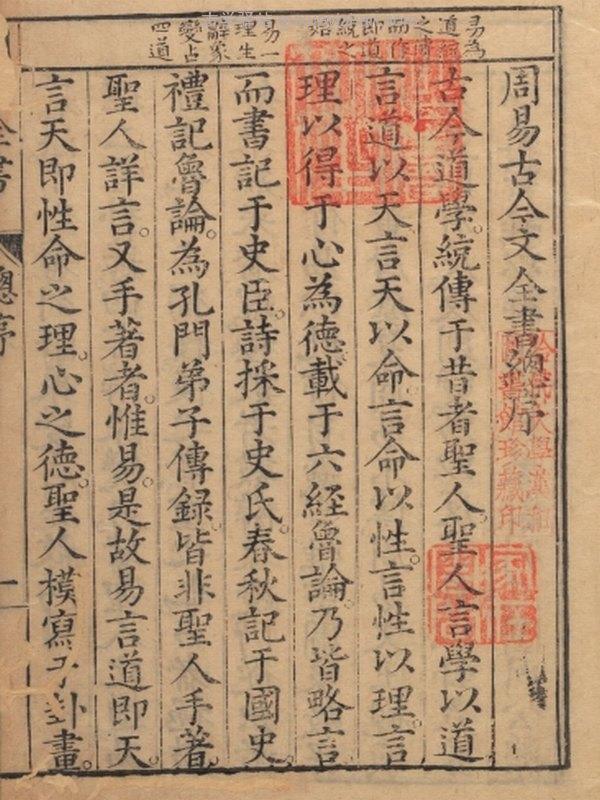 易為
道統
而作
即道
統之
易一
理生
辭象
變占
四道
周易古今文全書總序
古今道學。統傳于昔者聖人。聖人言學以道
言道以天言天以命。言命以性。言性以理言
理以得于心為德。載于六経魯論。乃皆略言
而書記于史臣。詩採于史氏。春秋記于國史。
禮記魯論。為孔門弟子傳録。皆非聖人手著。
聖人詳言。又手著者。惟易。是故易言道即天。
言天即性命之理。心之德。聖人模寫于卦畫。
全書
總序
一
哈佛大學漢和
圖書館珍藏印